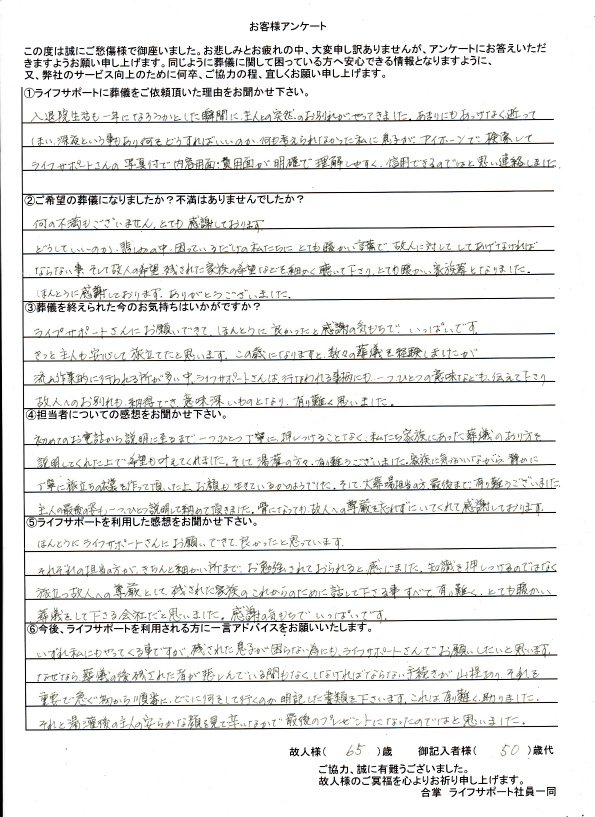 お客様アンケート
この度は誠にご愁傷様で御座いました。お悲しみとお疲れの中、大変申し訳ありませんが、アンケートにお答えいただ
きますようお願い申し上げます。同じように葬儀に関して困っている方へ安心できる情報となりますように、
又、弊社のサービス向上のために何卒、ご協力の程、宜しくお願い申し上げます。
①ライフサポートに葬儀をご依頼頂いた理由をお聞かせ下さい。
入退院生活も一年になろうかとした瞬間に、主人との突然のお別れがやってきました。あまりにもあっけなく逝って
しまい、深夜という事もあり何をどうすればいいのか、何も考えられなかった私に息子が、アイホーンで、検索して
ライフサポートさんの写真付で内容面・費用面が明確で理解しやすく、信用できるのではと思い連絡しました。
②ご希望の葬儀になりましたか？不満はありませんでしたか？
何の不満もございません。とても感謝しております。
どうしていいのか、悲しみの中、困っているだけの私たちにとても暖かい言葉で、故人に対してしてあげなければ
ならない事、そして故人の希望、残された家族の希望などを細かく聴いて下さり、とても暖かい家族葬となりました。
ほんとうに感謝しております。ありがとうございました。
③葬儀を終えられた今のお気持ちはいかがですか？
ライフサポートさんにお願いできて、ほんとうに良かったと感謝の気もちで、いっぱいです。
きっと主人も安心して旅立てたと思います。この歳になりますと、数々の葬儀を経験しましたが
流れ作業的に行われる所が多い中、ライフサポートさんは、行なわれる事柄にも、一つひとつの意味なども、伝えて下さり
故人へのお別れも、納得でき、意味深いものとなり、有り難く思いました。
④担当者についての感想をお聞かせ下さい。
初めてのお電話から説明に至るまで一つひとつ丁寧に、押しつけることなく、私たち家族にあった葬儀のあり方を
説明してくれた上で希望も叶えてくれました。そして湯灌の方々、有り難うございました。家族に気づかいながら、静かに
丁寧に旅立ちの仕度を作って頂いた上、お顔も生きているかのようでした。そして、大葬場担当の方、最後まで有り難うございました。
主人の最後の姿も一つひとつ説明して納めて頂きました。骨になっても、故人への尊厳を忘れずにいてくれて感謝しております。
⑤ライフサポートを利用した感想をお聞かせ下さい。
ほんとうにライフサポートさんにお願いできて、良かったと思っています。
それぞれの担当の方が、きちんと細かい所まで、お勉強されておられると感じました。知識を押しつけるのではなく
旅立つ故人への尊厳として、残された家族のこれからのために話して下さる事すべて、有り難く、とても暖かい
葬儀をして下さる会社だと思いました。感謝の気もちでいっぱいです。
⑥今後、ライフサポートを利用される方に一言アドバイスをお願いいたします。
いずれ私にもやってくる事ですが、残された息子が困らない為にも、ライフサポートさんでお願いしたいと思います。
なぜなら葬儀の後、残された者が悲しんでいる間もなく、しなければならない手続きが山程あり、それを
重要で急ぐ物から順番に、どこに何をして行くのか明記した書類を下さいます。これは有り難く、助かりました。
それと湯灌後の主人の安らかな顔を見て辛いなかで最後のプレゼントになったのではと思いました。
故人様( 65 )歳 御記入者様( 50 )歳代
ご協力、誠に有難うございました。
故人様のご冥福を心よりお祈り申し上げます。
合掌 ライフサポート社員一同